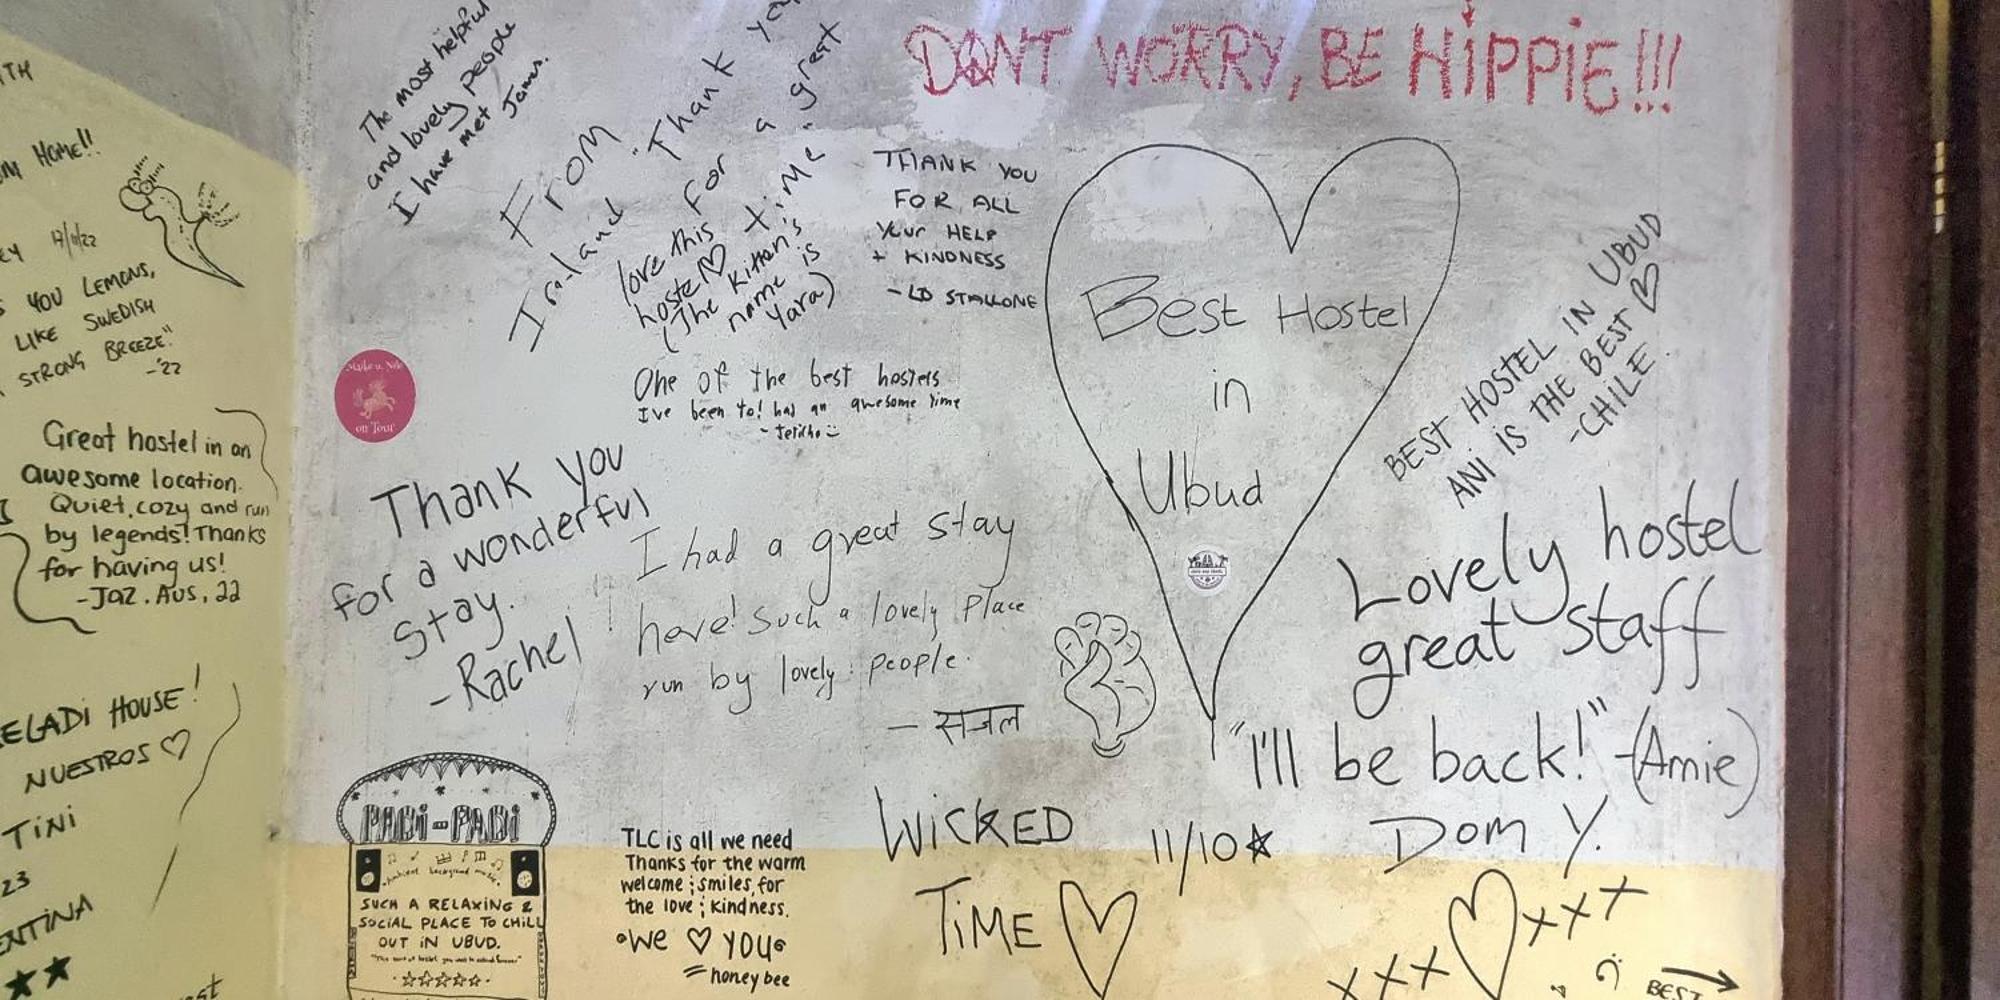 TH
HOME!!
17/11/22
YOU LEMONS,
LIKE SWEDISH
STRONG BREEZE."
-'22
Great hostel in an
awesome location.
Quiet, cozy and run
by legends! Thanks
for having us!
-JAZ. AUS. 22
ELADI HOUSE!
NUESTROS ♡
TINI
23
ENTINA
★★
The most helpful
and lovely people
I have met
From
Ireland
Thank you
for a great
time
love this
hostel♡
(The kitten's
name is
Yara)
THANK YOU
FOR ALL
YOUR HELP
+ KINDNESS
- LD STALLONE
One of the best hostels
I've been to! had an awesome time
- Jericho
Make a Nde
on Tour
Thank you
for a wonderful
stay.
-Rachel
I had a great stay
here! Such a lovely place
run by lovely people.
- सजल
DONT WORRY, BE HiPPiE!!!
Best Hostel
in
Ubud
BEST HOSTEL IN UBUD
ANI IS THE BEST ♡
-CHILE.
Lovely hostel
great staff
"I'll be back!" -(Arnie)
Dom Y.
PADi-PADi
Ambient background music
SUCH A RELAXING &
SOCIAL PLACE TO CHILL
OUT IN UBUD.
☆☆☆☆☆
TLC is all we need
Thanks for the warm
welcome ; smiles, for
the love ; kindness.
We ♡ you
= honey bee
WICKED
TIME ♡
11/10★
xxx♡xxx
BEST →